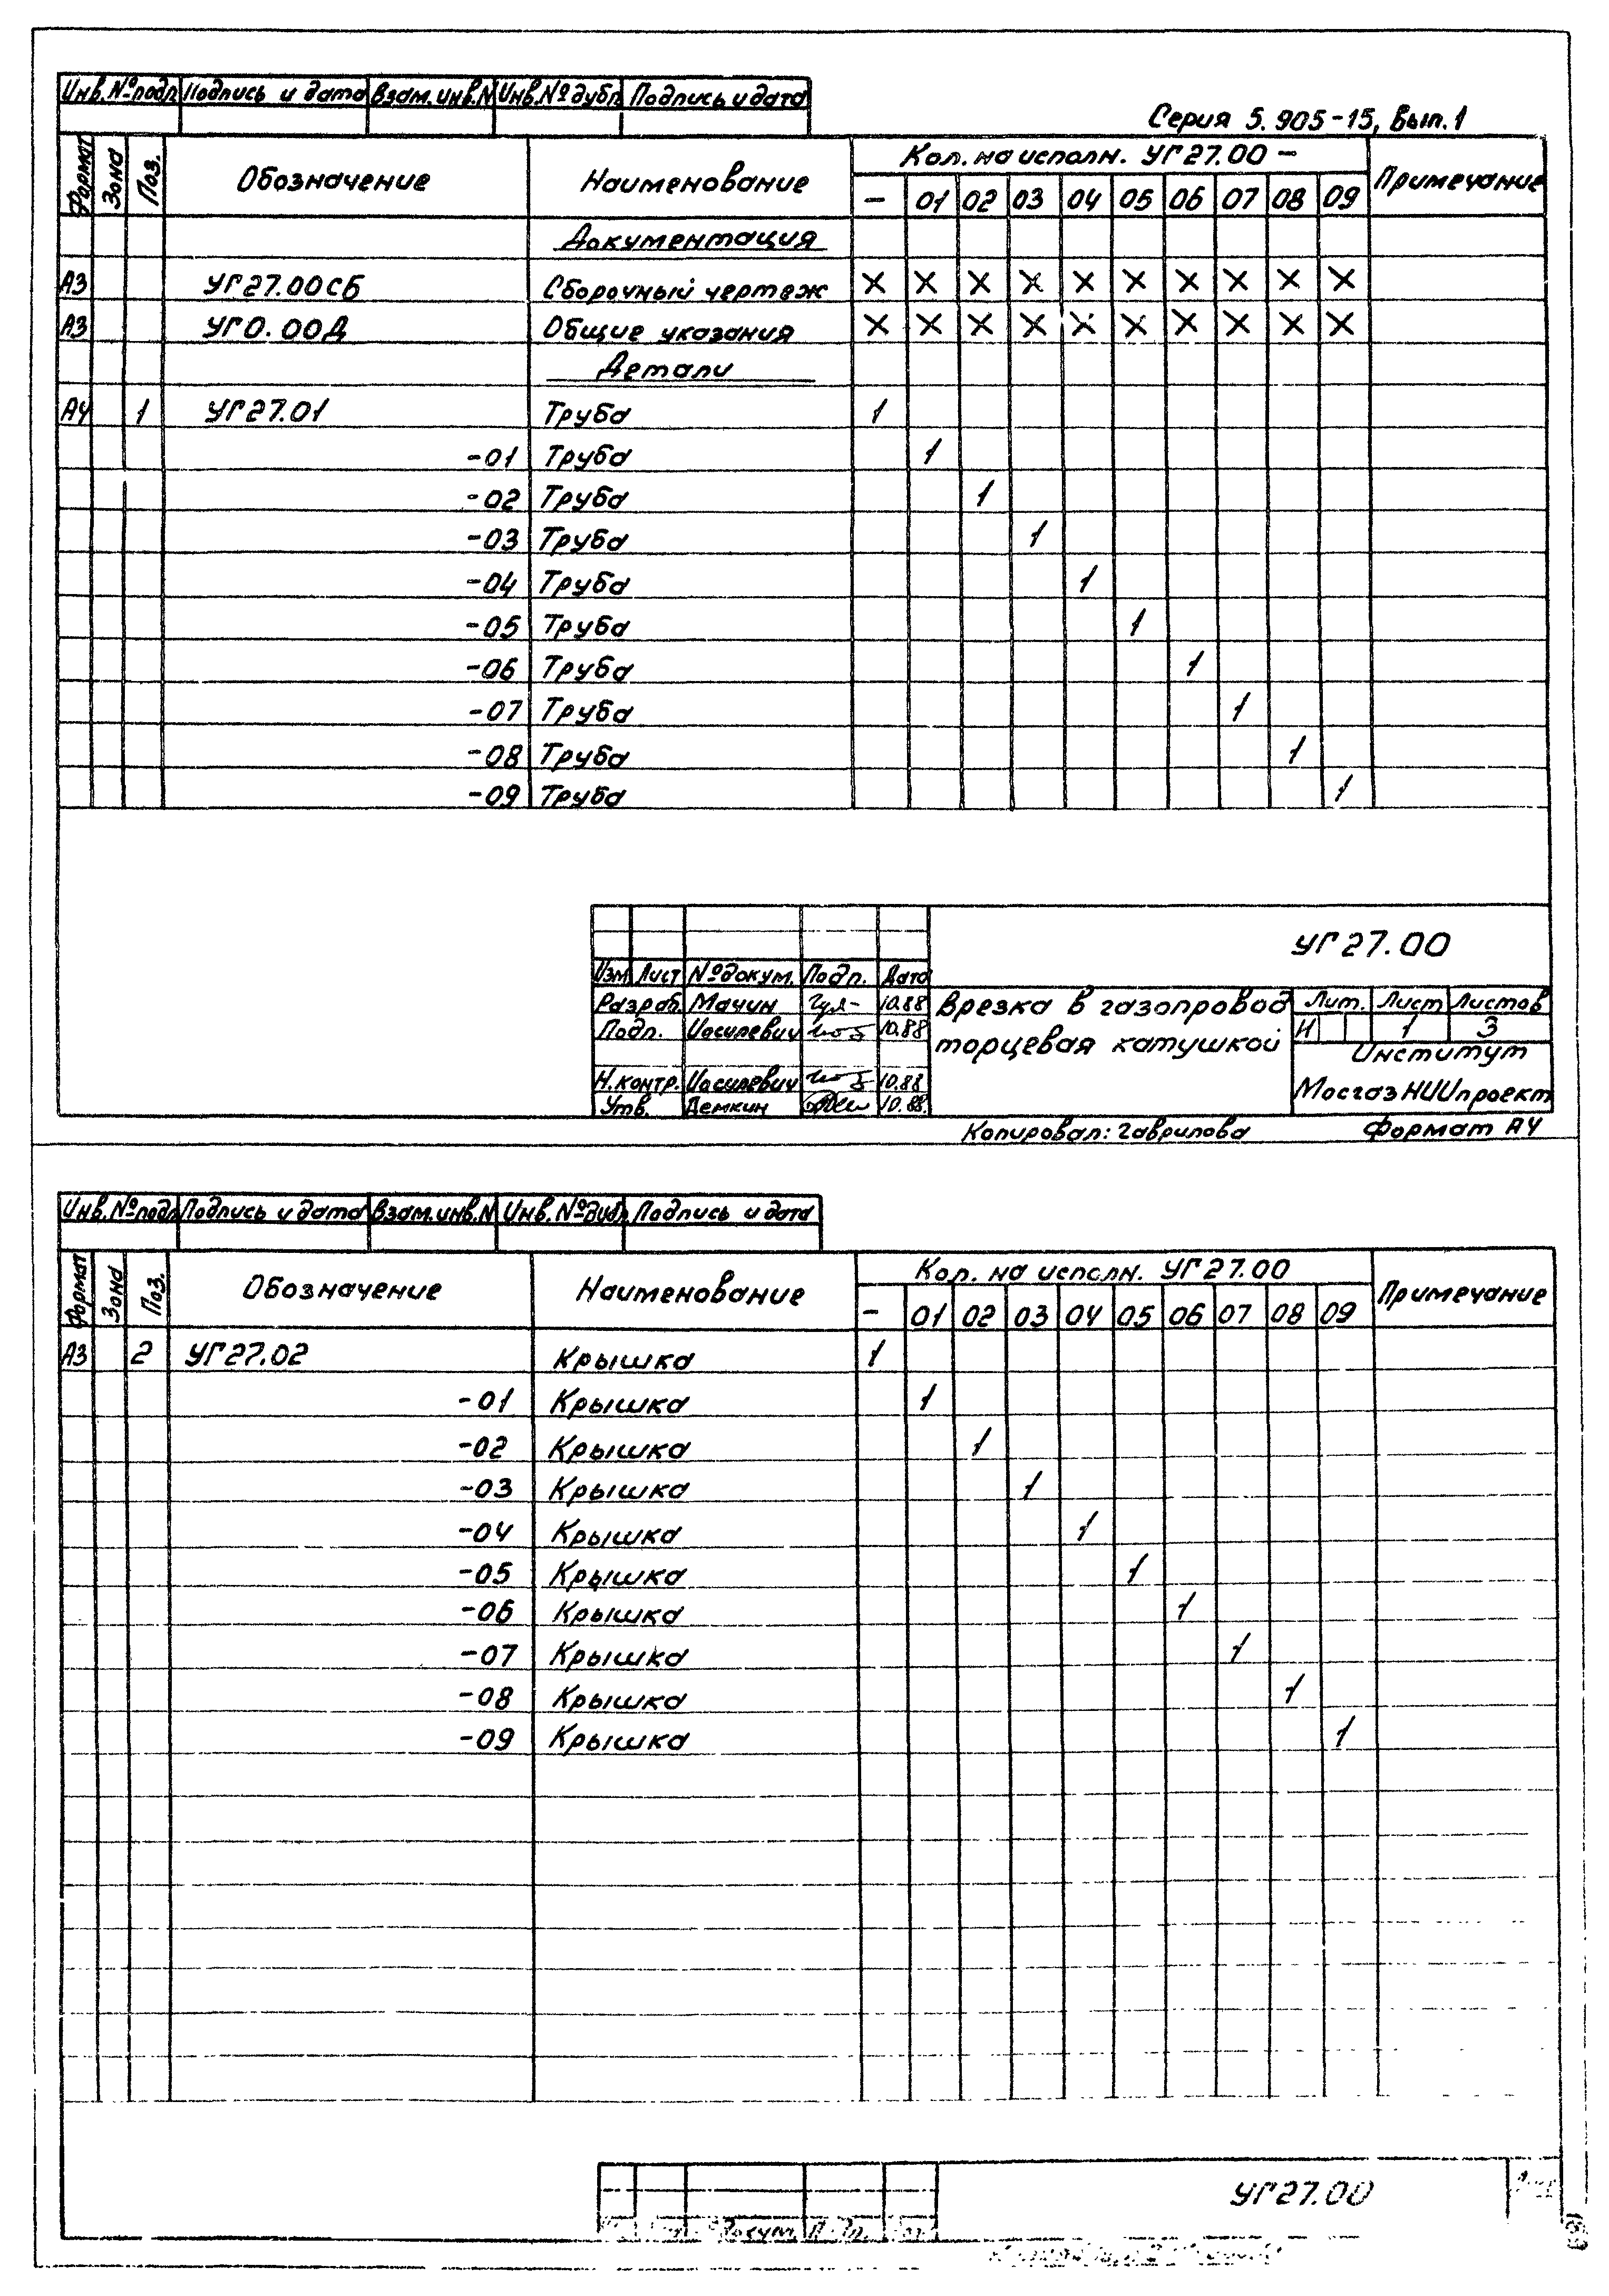 Инв.№подл Подпись и дата Взам.инв.N Инв.№дубл Подпись и дата
Серия 5.905-15, Вып.1
Формат Зона Поз. Обозначение Наименование Кол. на исполн. УГ27.00 – Примечание
– 01 02 03 04 05 06 07 08 09
Документация
А3 УГ27.00СБ Сборочный чертеж X X X X X X X X X X
А3 УГ0.00Д Общие указания X X X X X X X X X X
Детали
А4 1 УГ27.01 Труба 1
-01 Труба 1
-02 Труба 1
-03 Труба 1
-04 Труба 1
-05 Труба 1
-06 Труба 1
-07 Труба 1
-08 Труба 1
-09 Труба 1
УГ27.00
Изм Лист №докум. Подп. Дата
Разраб. Мачин 10.88 Врезка в газопровод Лит. Лист Листов
Подп. Иосилевич 10.88 торцевая катушкой И 1 3
Институт
Н.контр. Иосилевич 10.88 МосгазНИИпроект
Утв. Демкин 10.88.
Копировал: Гаврилова Формат А4
Инв.№подл Подпись и дата Взам.инв.N Инв.№дубл. Подпись и дата
Формат Зона Поз. Обозначение Наименование Кол. на исполн. УГ27.00 Примечание
– 01 02 03 04 05 06 07 08 09
А3 2 УГ27.02 Крышка 1
-01 Крышка 1
-02 Крышка 1
-03 Крышка 1
-04 Крышка 1
-05 Крышка 1
-06 Крышка 1
-07 Крышка 1
-08 Крышка 1
-09 Крышка 1
УГ27.00